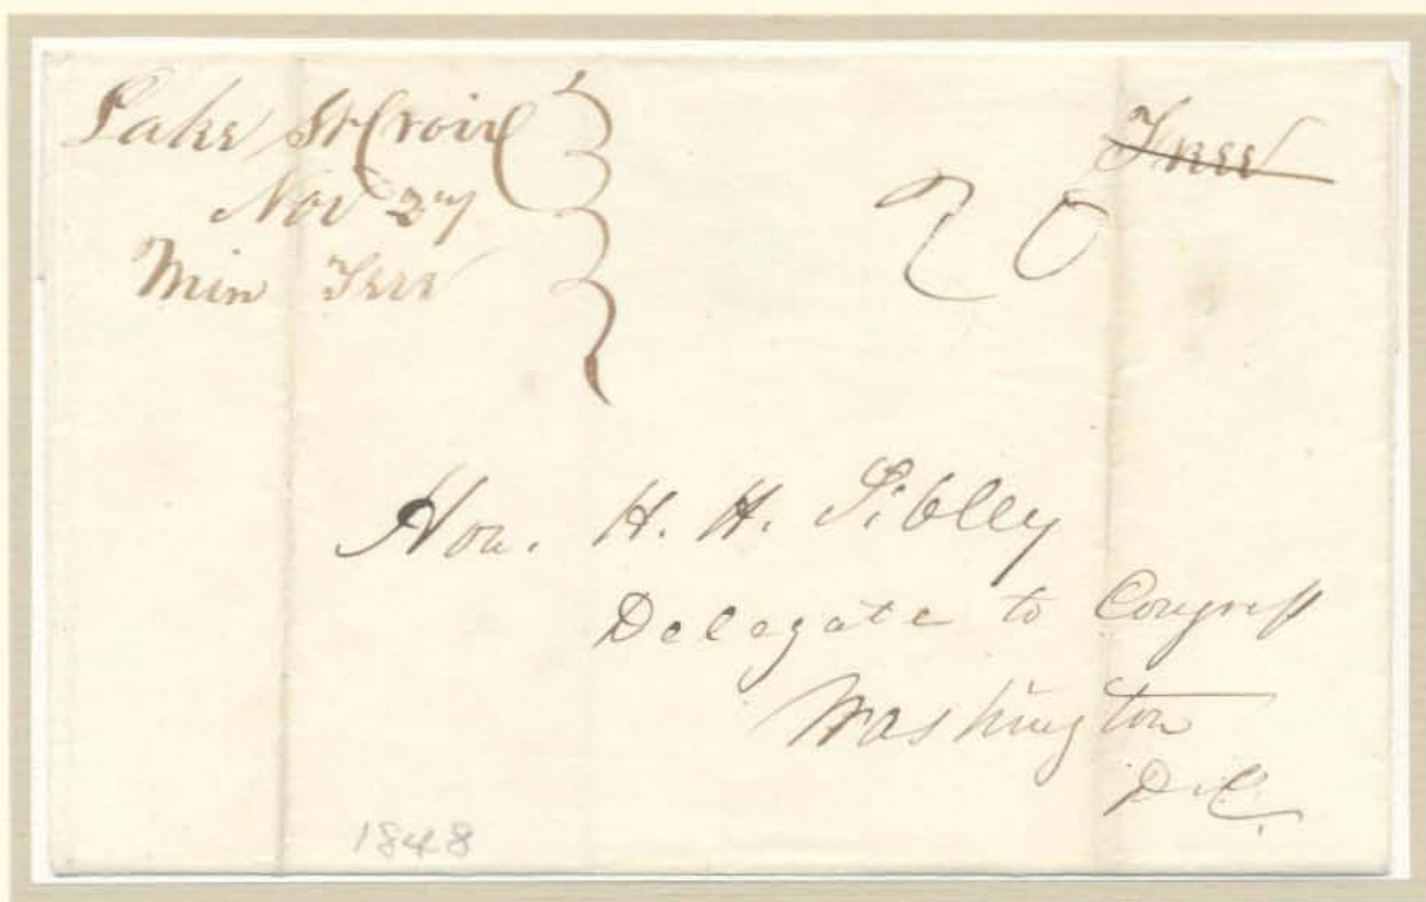 Lake St Croix
Nov 27
Min Terr
Free
20
Hon. H. H. Sibley
Delegate to Congress
Washington
D.C.
1848